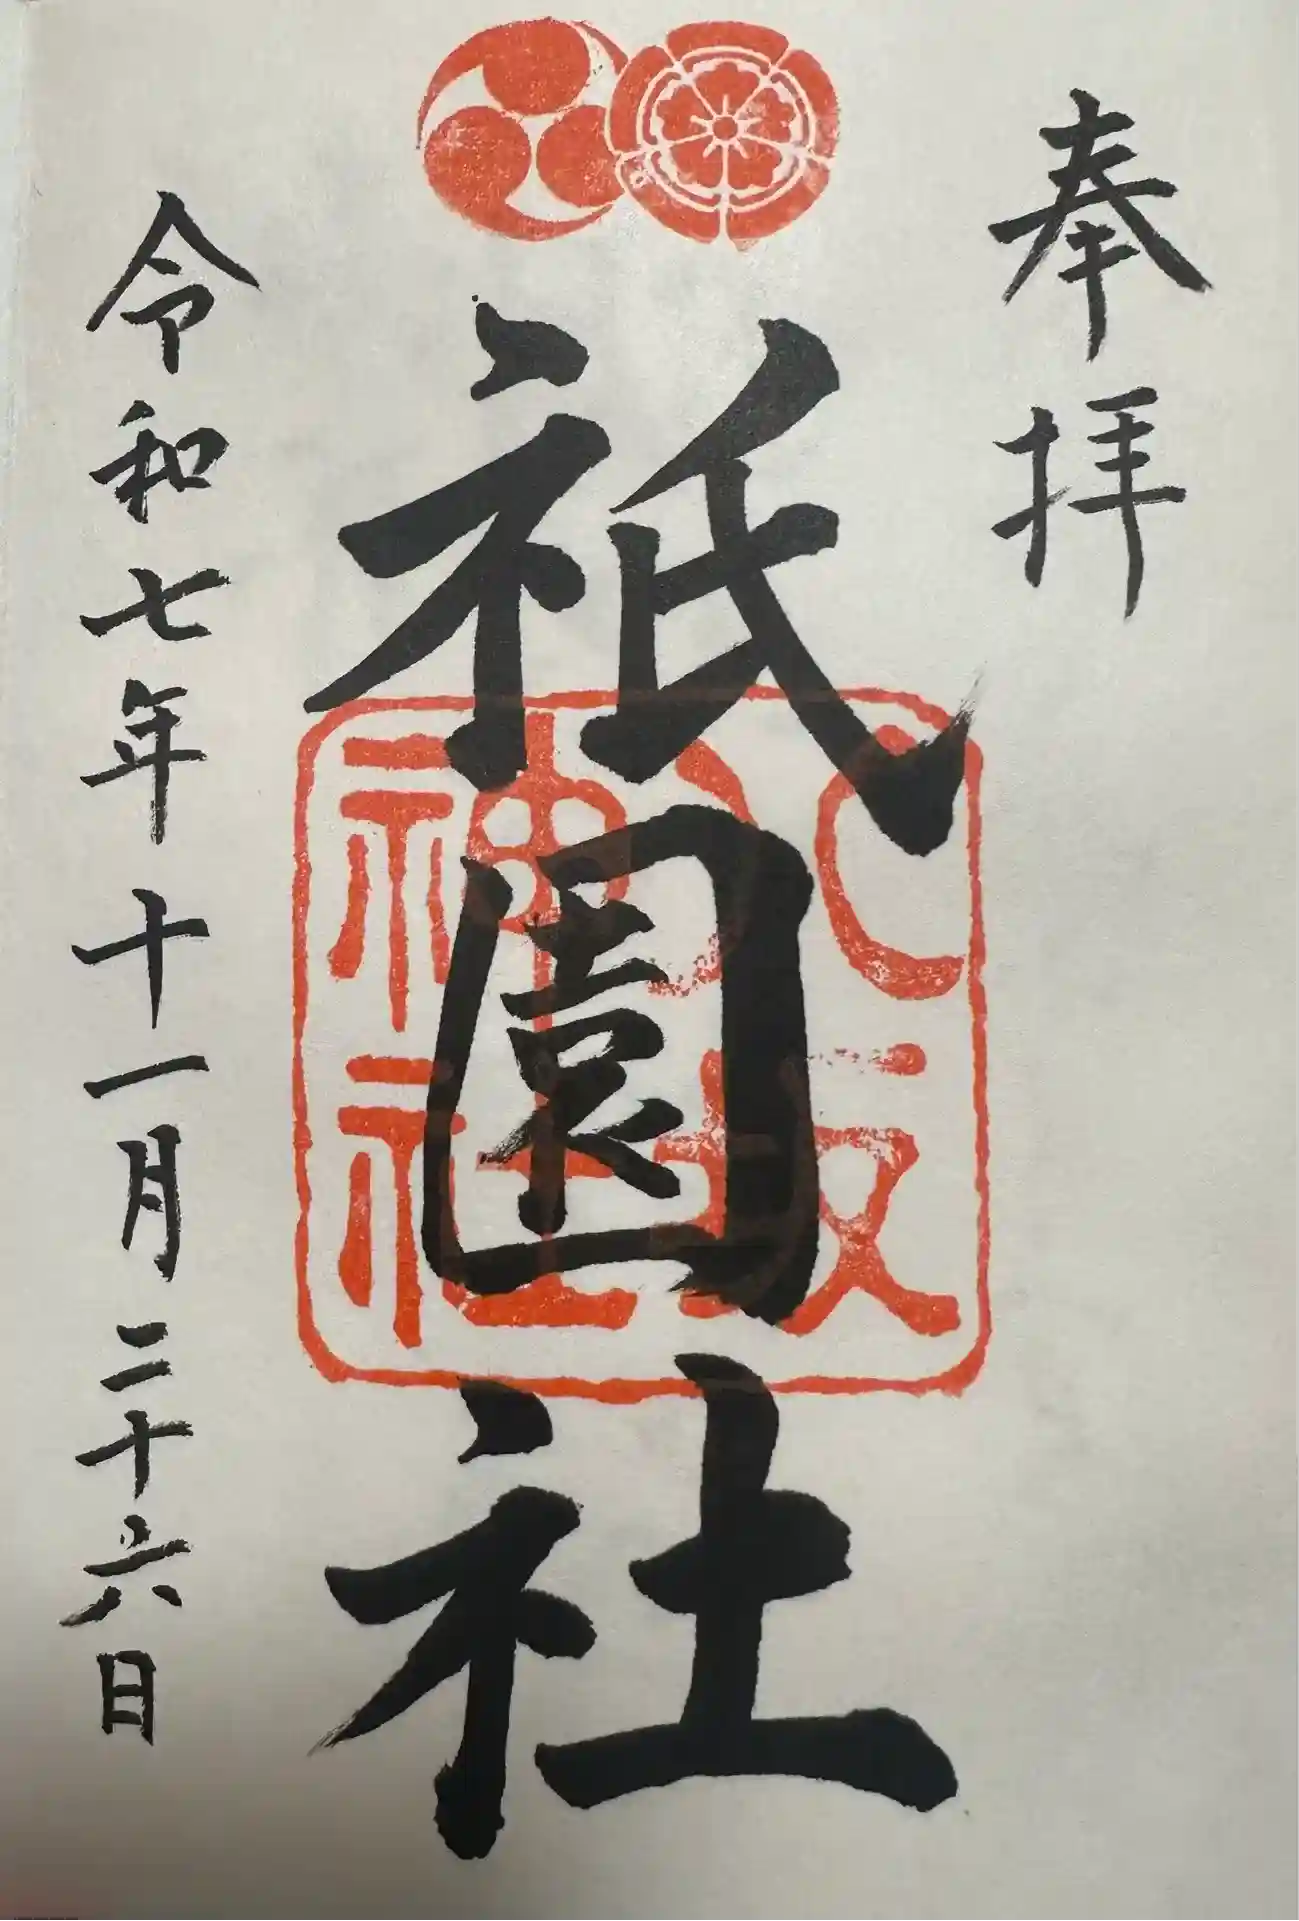 奉拝
祇園社
八坂神社
令和七年十一月二十六日